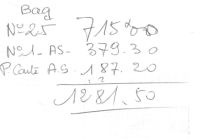 Bag
No 25 715.00
No 1-AS- 379.30
P Carte A.S. 187.20
1281.50